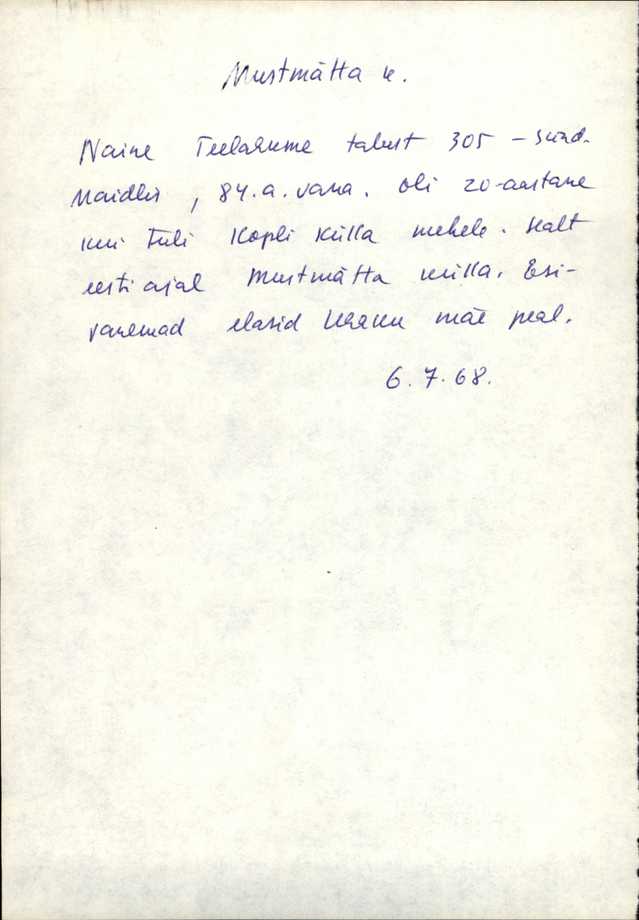 Mustmätta k.
Naine talust 305 – sünd.
Maidlis, 84.a. vana. Oli 20-aastane
kui tuli Kopli külla mehele. Sealt
eesti ajal Mustmätta külla. Esi-
vanemad elasid mäe peal.
6.7.68.